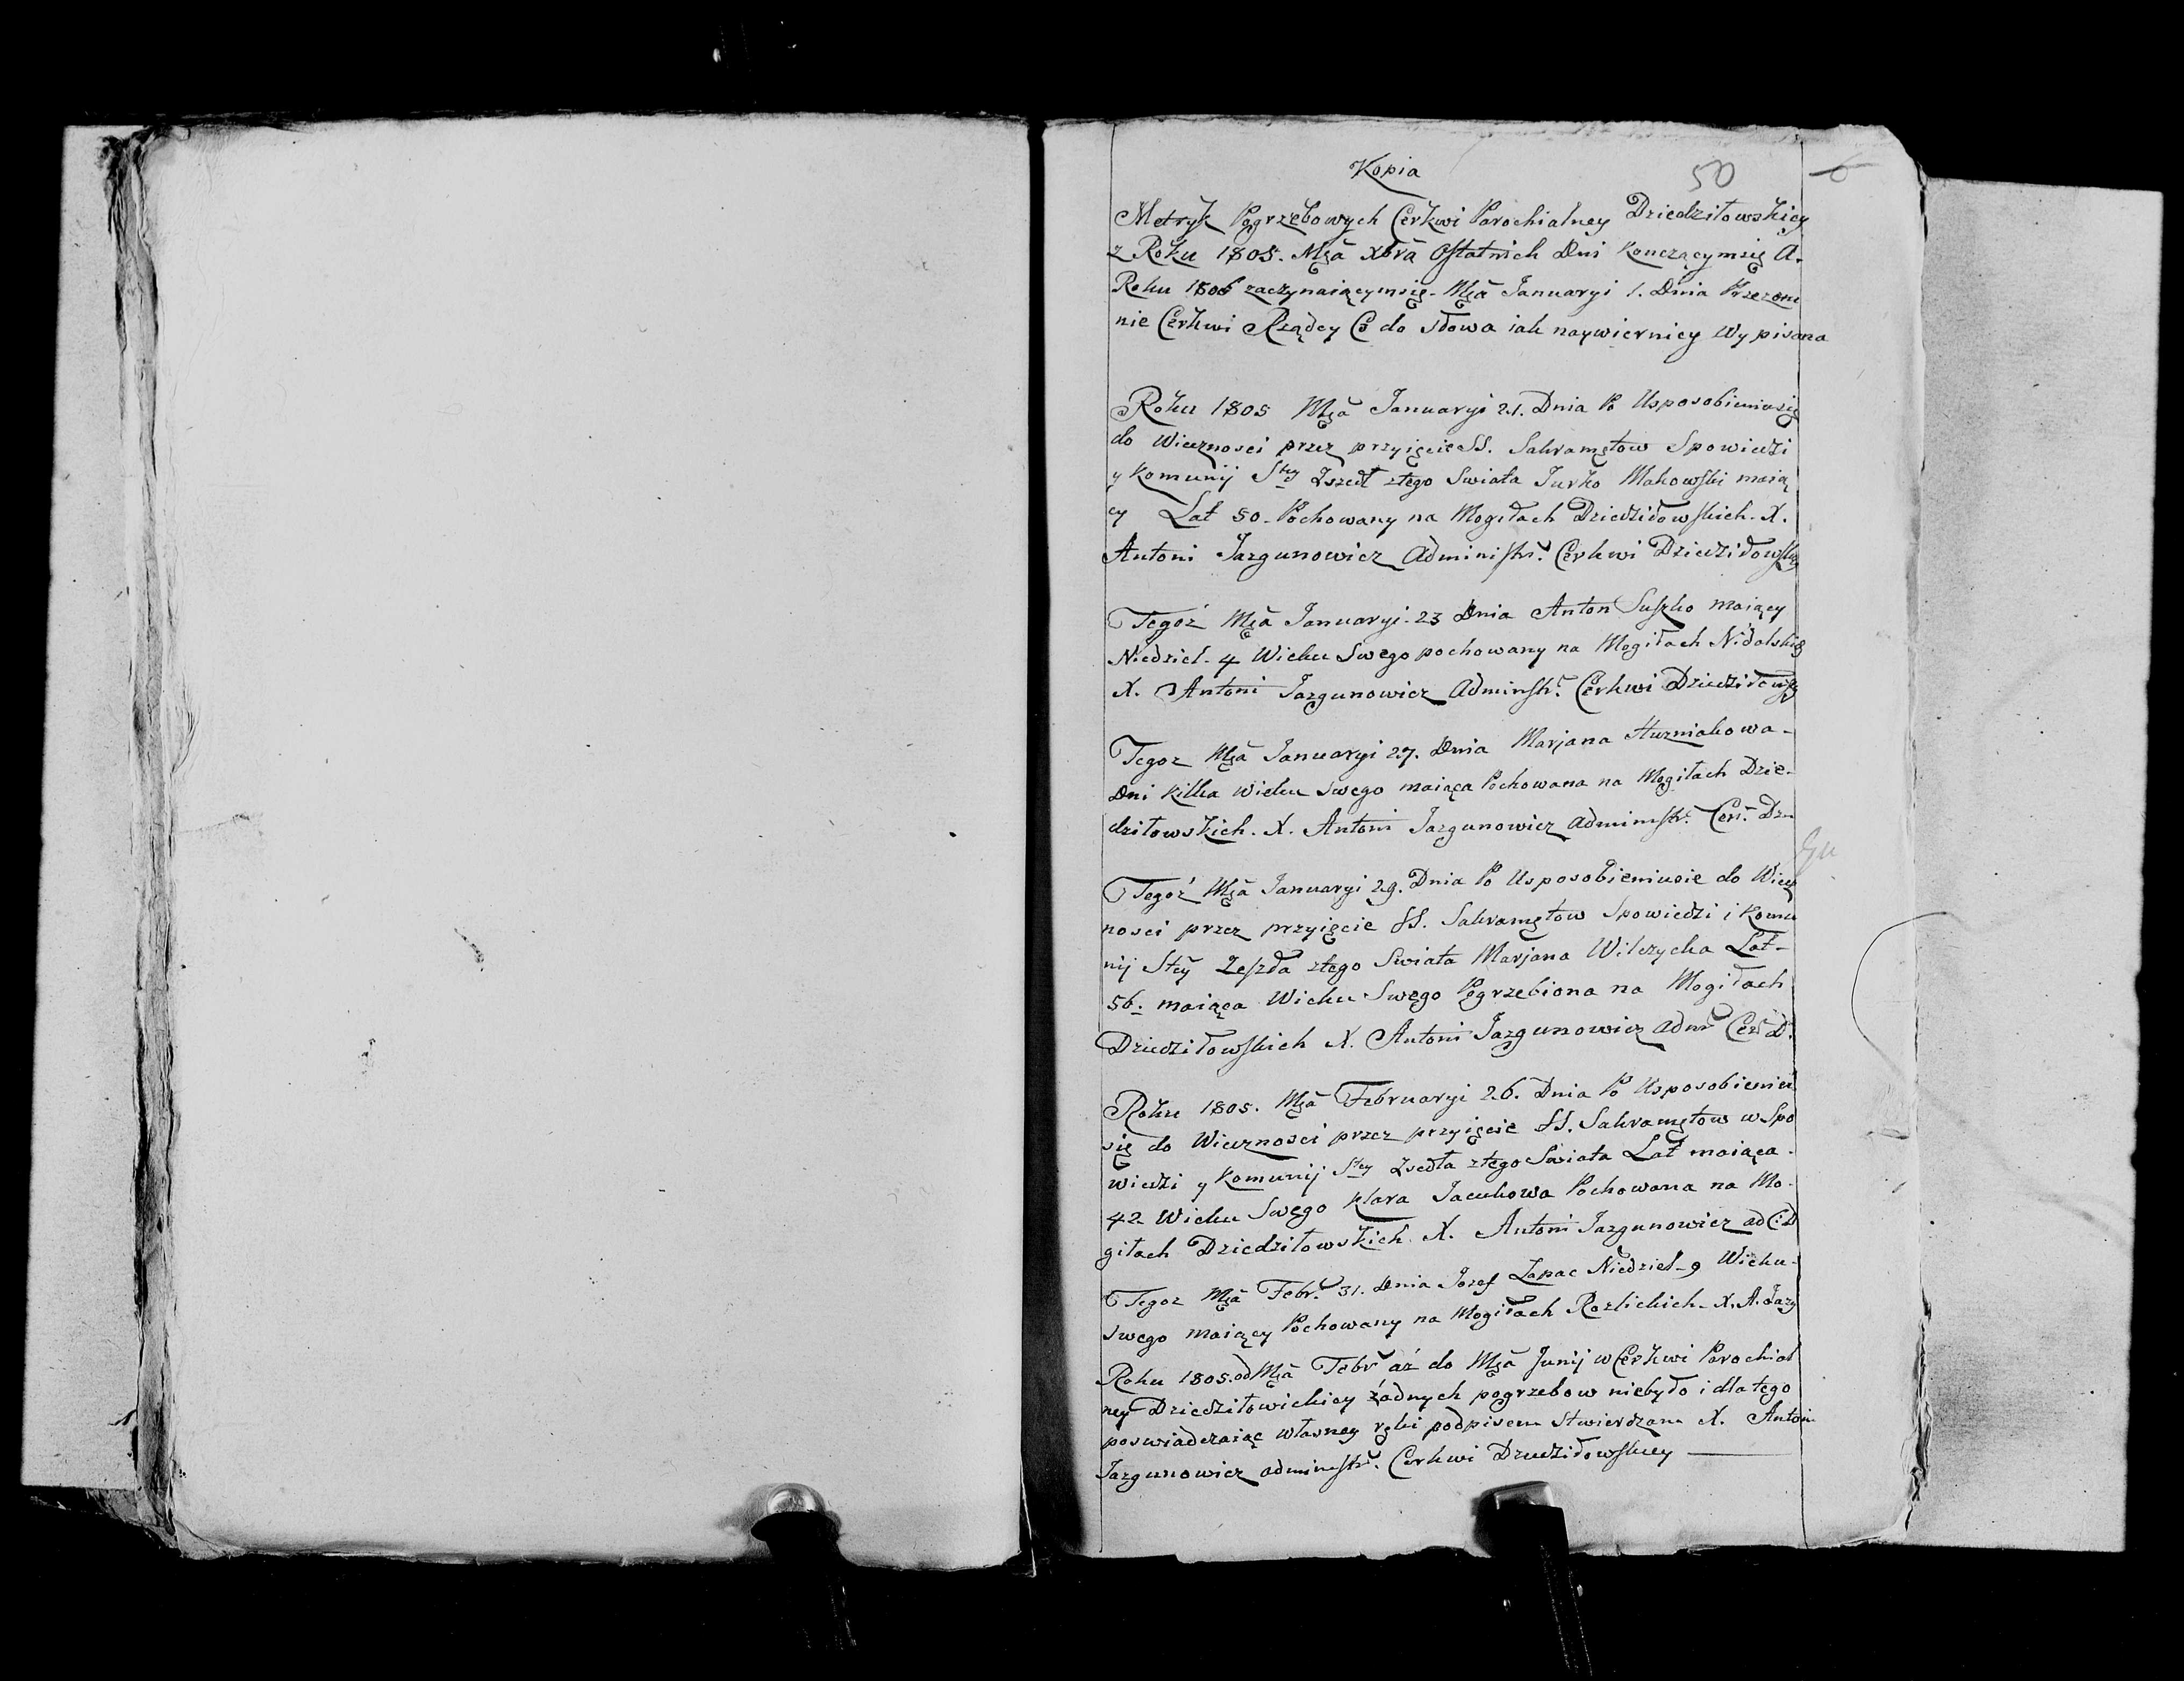 Kopia
50
6
Metryk Pogrzebowych Cerkwi Parochialney Dziedziłowskiey
z Roku 1805. Mca Xbra Ostatnich Dni Konczącymsię A.
Roku 1806 zaczynaiącymsię. Mca Januaryi 1. Dnia Przezem
nie Cerkwi Rządcy Co do słowa iak naywierniey Wypisana
Roku 1805 Mca Januaryi 21. Dnia Po Usposobieniusię
do Wiecznosci przez przyięcie SS. Sakramętow Spowiedzi
y Komunij Stey Zszedł ztego Swiata Jurko Makowski maią
cy Lat 50. Pochowany na Mogiłach Dziedziłowskich. X.
Antoni Jazgunowicz Administr. Cerkwi Dziedziłowskiey
Tegoż Mca Januaryi. 23 Dnia Anton Suszko maiący
Niedziel. 4 Wieku Swego pochowany na Mogiłach
X. Antoni Jazgunowicz Adminstr. Cerkwi Dziedziłowsk
Tegoz Mca Januaryi 27. Dnia Marjana Huzniakowa -
Dni kilka wieku swego maiąca Pochowana na Mogiłach Dzie-
dziłowskich. X. Antoni Jazgunowicz Adminstr. Cer. Dzi
Tegoż Mca Januaryi 29. Dnia Po Usposobieniusie do Wiecz
nosci przez przyięcie SS. Sakramętow Spowiedzi i Komu
nij Stey Zeszła ztego Swiata Marjana Wilczycka Lat -
56. maiąca Wieku Swego Pogrzebiona na Mogiłach
Dziedziłowskich X. Antoni Jazgunowicz Adm Cer D.
Roku 1805. Mca Februaryi 26. Dnia Po Usposobieniu
się do Wiecznosci przez przyięcie SS. Sakramętow w Spo
wiedzi y Komunij Stey Zsedła ztego Swiata Lat maiąca.
42 Wieku Swego Klara Jacukowa Pochowana na Mo-
giłach Dziedziłowskich. X. Antoni Jazgunowicz ad C: D
Tegoz Mca Febr. 31. Dnia Jozef Łapac Niedziel - 9 Wieku -
swego maiący Pochowany na Mogiłach Rozlickich. X. A. Jazg
Roku 1805. od Mca Febr aż do Mca Junij w Cerkwi Parochial
ney Dziedziłowickiey żadnych pogrzebow niebyło i dlatego
poswiadczaiąc własney ręki podpisem stwierdzam X. Antoni
Jazgunowicz adminstr. Cerkwi Dziedziłowskiey